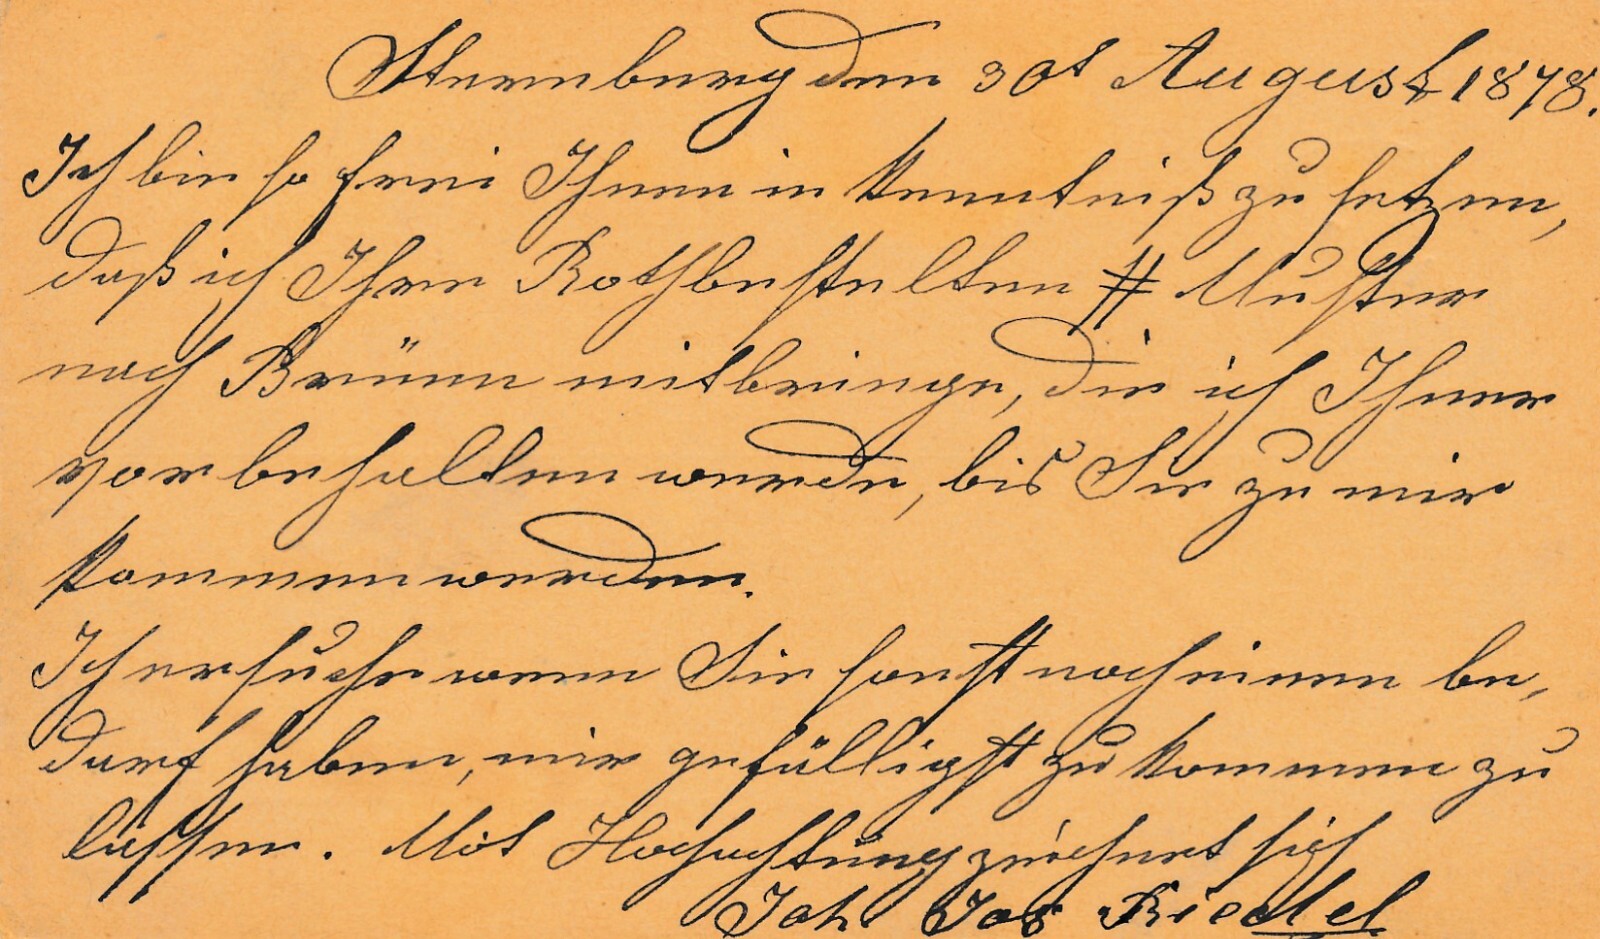 Sternberg den 30t August 1878.
Ich bin so frei Ihnen in Kenntniß zu setzen,
daß ich Ihre Rothbestelten # Muster
nach Brünn mitbringe, die ich Ihnen
vorbehalten werde, bis Sie zu mir
kommen werden.
Ich ersuche wenn Sie sonst noch einen be,
darf haben, mir gefälligst zu kommen zu
lassen. Mit Hochachtung zeichnet sich
Joh Jos Riedel